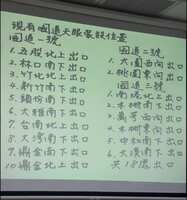 現有國道天眼裝設位置
國道一號
1.五股北上出口
2.林口南下出口
3.竹北北上出口
4.新竹南下出口
5.頭份南下出口
6.大雅南下出口
7.台南北上出口
8.大灣南下出口
9.鼎金南下出口
10.鼎金北上出口
國道二號
1.大園西向出口
2.桃園東向出口
國道三號
1.南港北上出口
2.木柵南下出口
3.萬芳西向出口
4.木柵東向出口
5.中和南下出口
6.大溪南下出口
共18處出口